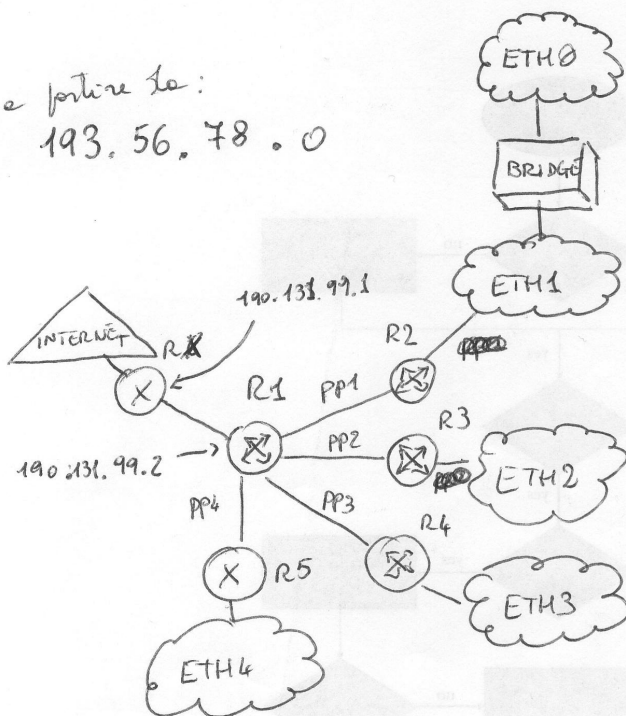 a partire da:
193.56.78.0
ETH0
BRIDGE
ETH1
190.131.99.1
INTERNET
R1
R2
PP1
R3
PP2
190.131.99.2
ETH2
PP4
PP3
R4
R5
ETH3
ETH4